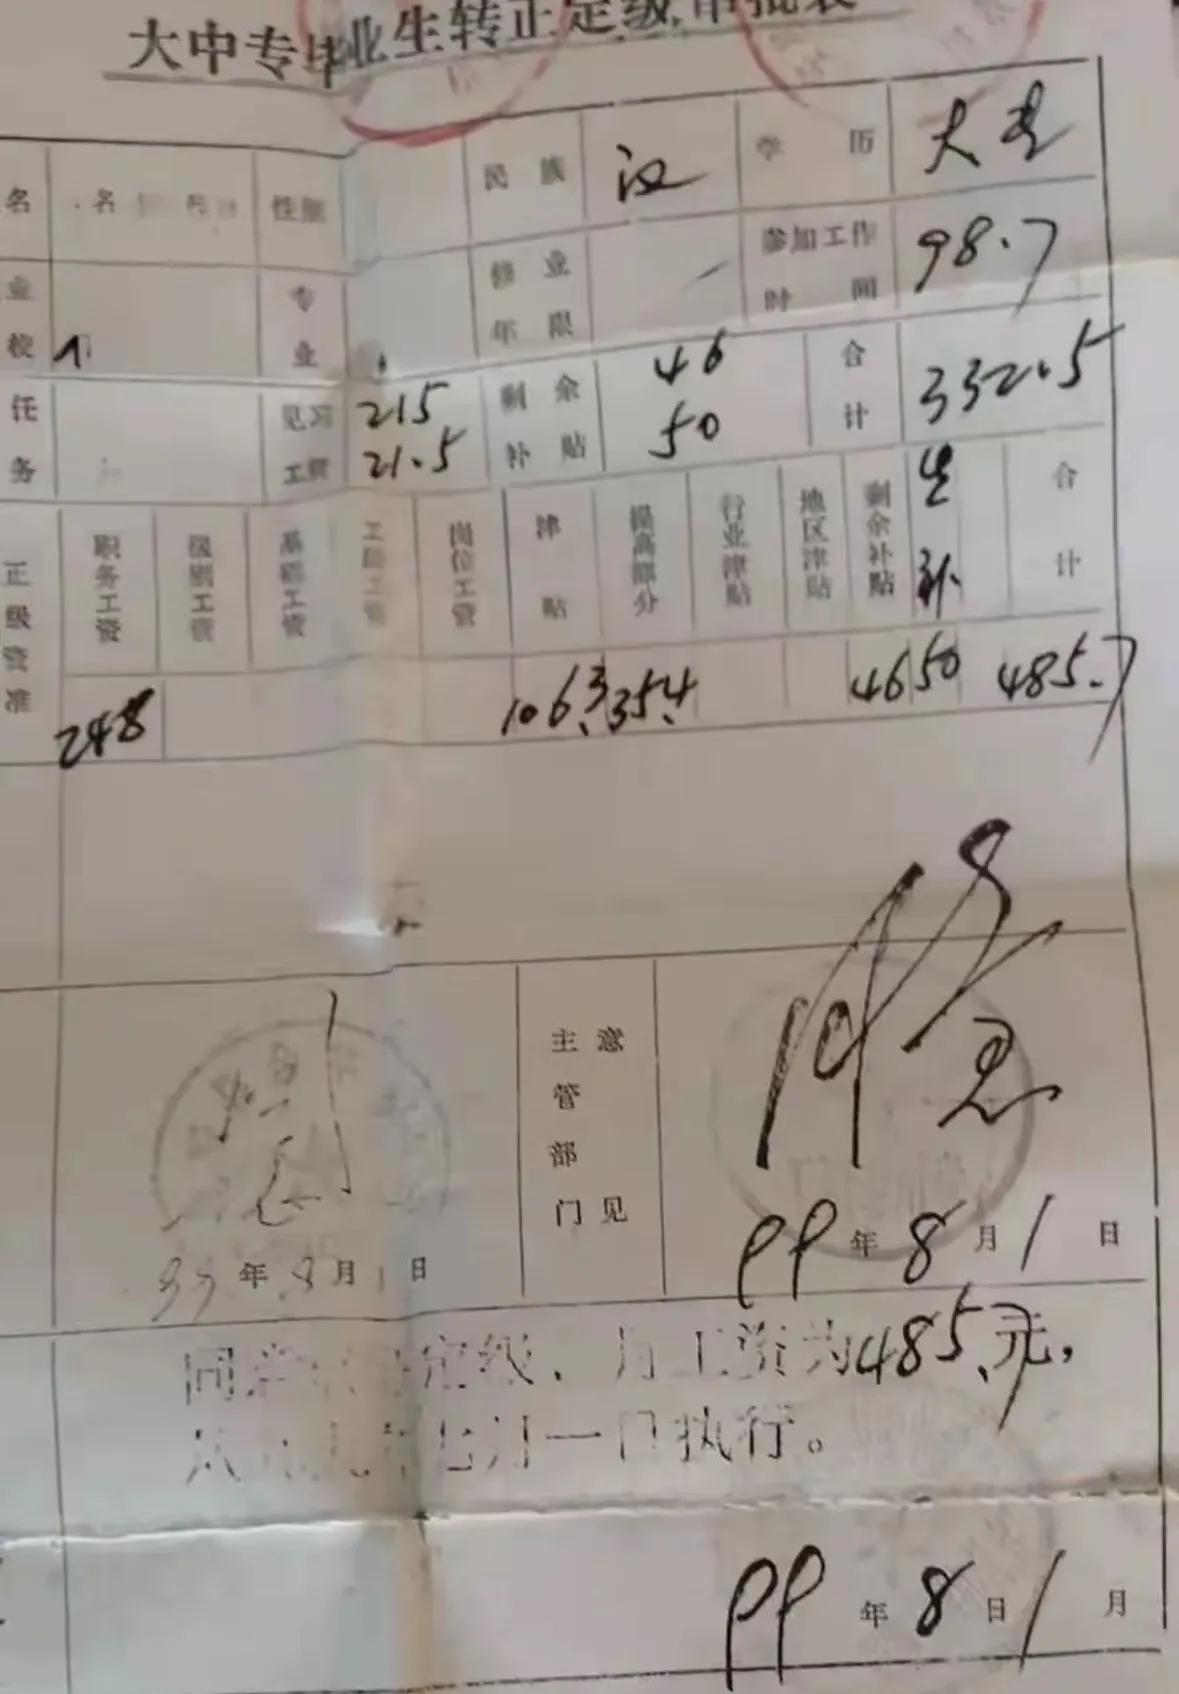 大中专毕业生转正定级审批表
名 性别 民族 汉 学历 大专
业校 专业 修业年限 参加工作时间 98.7
任务 见习工资 215 21.5 剩余补贴 46 50 合计 332.5
正级资准 职务工资 级别工资 基础工资 工龄工资 岗位工资 津贴 提高部分 行业津贴 地区津贴 剩余补贴 生补 合计
248 106.3 35.4 46 50 485.7
主管部门意见 同意
99年8月1日 99年8月1日
同意 定级,月工资为485.7元,
从 七月一日执行。
99年8日1月